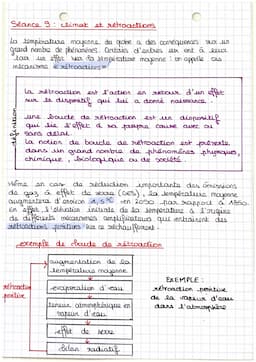 Séance 3 : climat et rétroactions
La température moyenne du globe a des conséquences sur un
grand nombre de phénomènes. Certains d'entre eux ont à leur
tour un effet sur la température moyenne : on appelle ces
mécanismes « rétroactions ».
définition
La rétroaction est l'action en retour d'un effet
sur le dispositif qui lui a donné naissance.
une boucle de rétroaction est un dispositif
qui lie l'effet à sa propre cause avec ou
sans délai.
La notion de boucle de rétroaction est présente
dans un grand nombre de phénomènes physiques,
chimique, biologique ou de société.
Même en cas de réduction importante des émissions
de gaz à effet de serre (GES), la température moyenne
augmentera d'environ 1,5°C en 2050 par rapport à 1850.
en effet, l'élévation initiale de la température à l'origine
de différents mécanismes amplificateurs qui entraînent des
rétroactions positives sur ce réchauffement.
exemple de boucle de rétroaction
augmentation de la
température moyenne
évaporation d'eau
teneur atmosphérique en
vapeur d'eau
effet de serre
bilan radiatif
rétroaction
positive
EXEMPLE :
rétroaction positive
de la vapeur d'eau
dans l'atmosphère